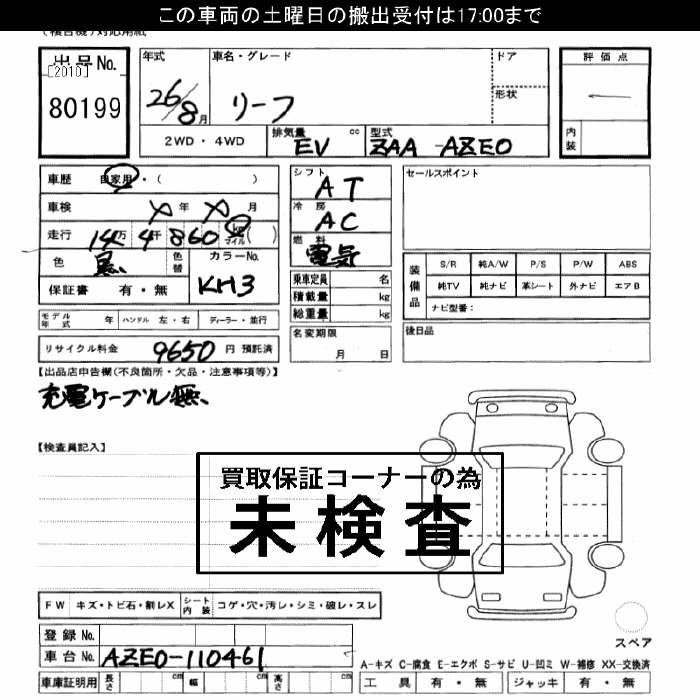 この車両の土曜日の搬出受付は17:00まで
出品No.
[2010]
80199
年式
26/8月
車名・グレード
リーフ
ドア
形状
評価点
内装
2WD・4WD
排気量 cc
EV
型式
ZAA-AZEO
車歴 自家用・( )
車検 年 月
走行 14万4千860 km マイル ( )
色 黒 色替
カラーNo.
KH3
保証書 有・無
シフト
AT
冷房
AC
燃料
電気
乗車定員 名
積載量 kg
総重量 kg
セールスポイント
装備品
S/R 純A/W P/S P/W ABS
純TV 純ナビ 革シート 外ナビ エアB
ナビ型番：
モデル年式 年 ハンドル 左・右 ディーラー・並行
名変期限
月 日
後日品
リサイクル料金 9650 円 預託済
【出品店申告欄(不良箇所・欠品・注意事項等)】
充電ケーブル無、
【検査員記入】
買取保証コーナーの為
未検査
FW キズ・トビ石・割レX シート内装 コゲ・穴・汚レ・シミ・破レ・スレ
登録No.
車台No. AZEO-110461
スペア
A-キズ C-腐食 E-エクボ S-サビ U-凹ミ W-補修 XX-交換済
車庫証明用 長さ cm 幅 cm 高さ cm
工具 有・無 ジャッキ 有・無